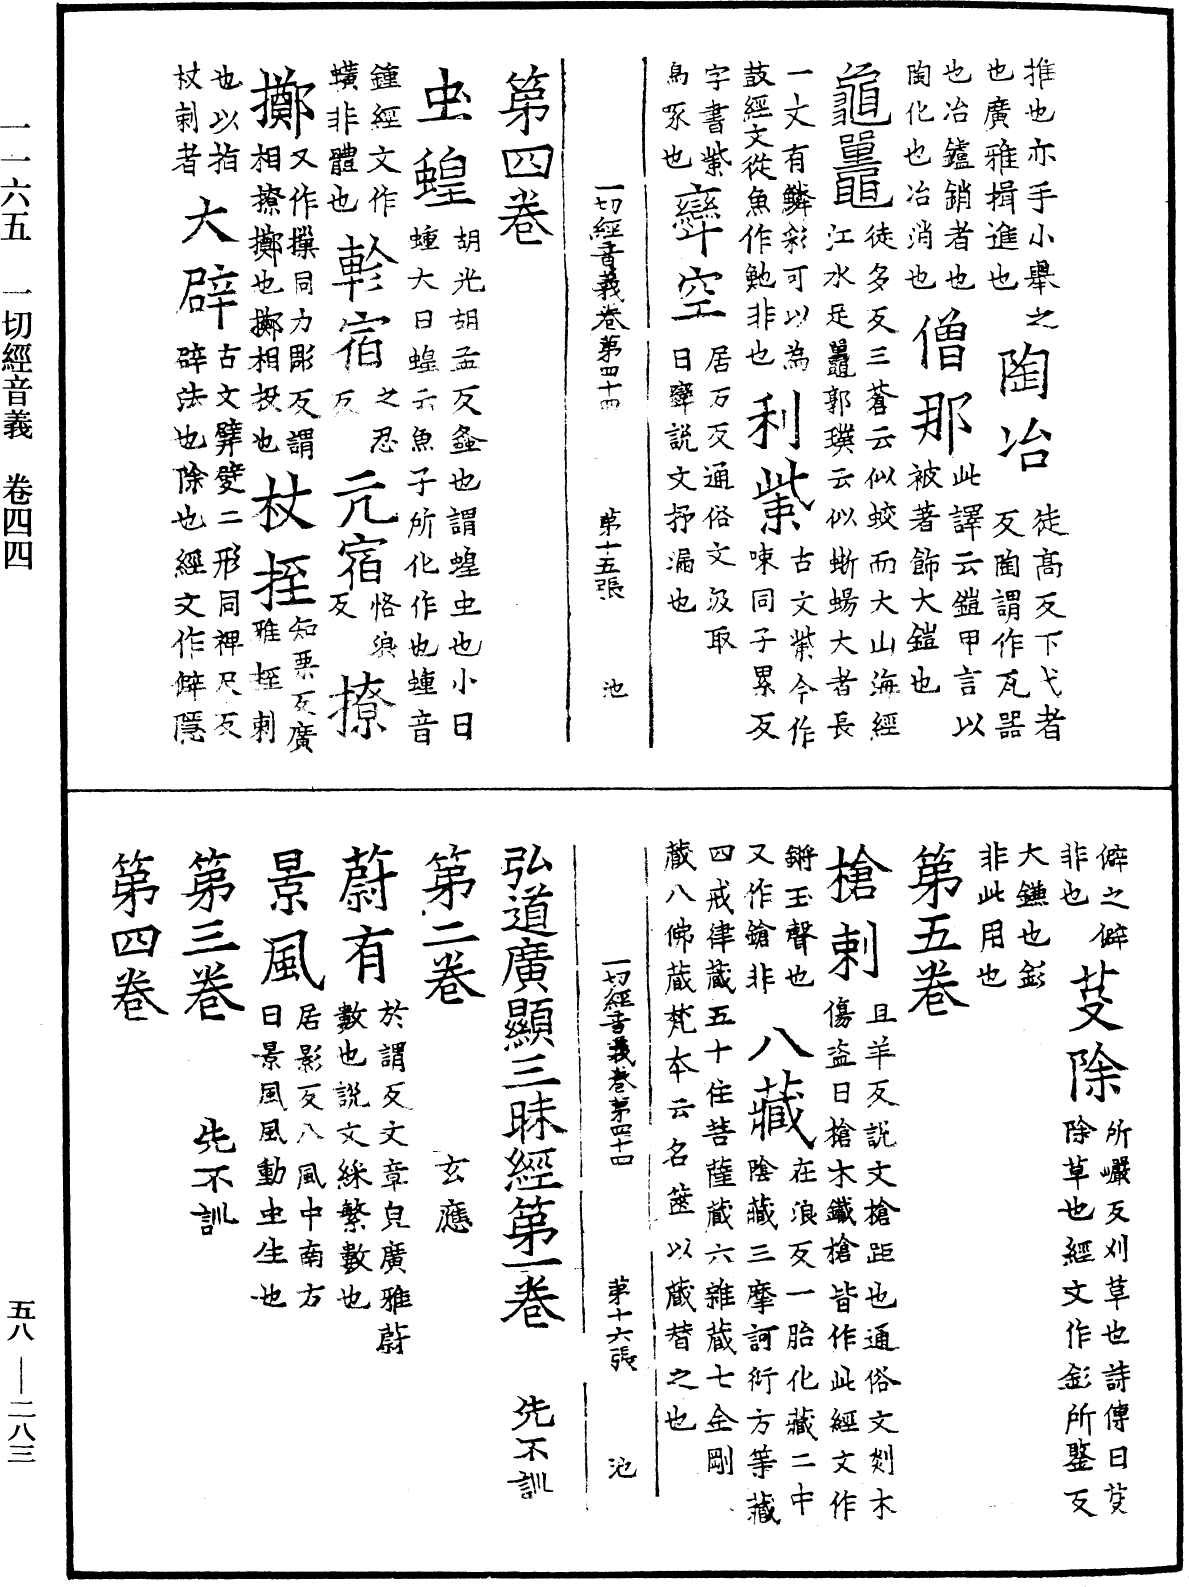 推也亦手小舉之
也廣雅揖進也
陶冶
徒高反下弋者
反陶謂作瓦器
也冶鑪銷者也
陶化也冶消也
僧那
此譯云鎧甲言以
被著飾大鎧也
龜鼉
徒多反三蒼云似蛟而大山海經
江水足鼉郭璞云似蜥蜴大者長
一丈有鱗彩可以為
鼓經文從魚作鮑非也
利㭰
古文㭰今作
㖢同子累反
字書㭰
鳥喙也
㪻空
居万反通俗文汲取
曰㪻說文抒漏也
一切經音義卷第四十四 第十五張 池
第四卷
虫蝗
胡光胡孟反螽也謂蝗虫也小曰
蝩大曰蝗云魚子所化作也蝩音
鍾經文作
蟥非體也
軫宿
之忍
反
亢宿
恪浪
反
撩
擲
又作摷同力彫反謂
相撩擲也擲相投也
杖挃
知栗反廣
雅挃刺
也以指
杖刺者
大辟
古文㢠躄二形同裨尺反
辟法也除也經文作僻隱
僻之僻
非也
芟除
所巖反刈草也詩傳曰芟
除草也經文作釤所鑒反
大鎌也釤
非此用也
第五卷
槍刺
且羊反說文槍距也通俗文剡木
傷盜曰槍木鐵槍皆作此經文作
鏘玉聲也
又作鎗非
八藏
在浪反一胎化藏二中
陰藏三摩訶衍方等藏
四戒律藏五十住菩薩藏六雜藏七金剛
藏八佛藏梵本云名篋以藏替之也
一切經音義卷第四十四 第十六張 池
弘道廣顯三昧經第一卷 先不訓
第二卷 玄應
蔚有
於謂反文章皃廣雅蔚
數也說文綵繁數也
景風
居影反八風中南方
曰景風風動虫生也
第三卷 先不訓
第四卷
一一六五 一切經音義 卷四四
五八——二八三